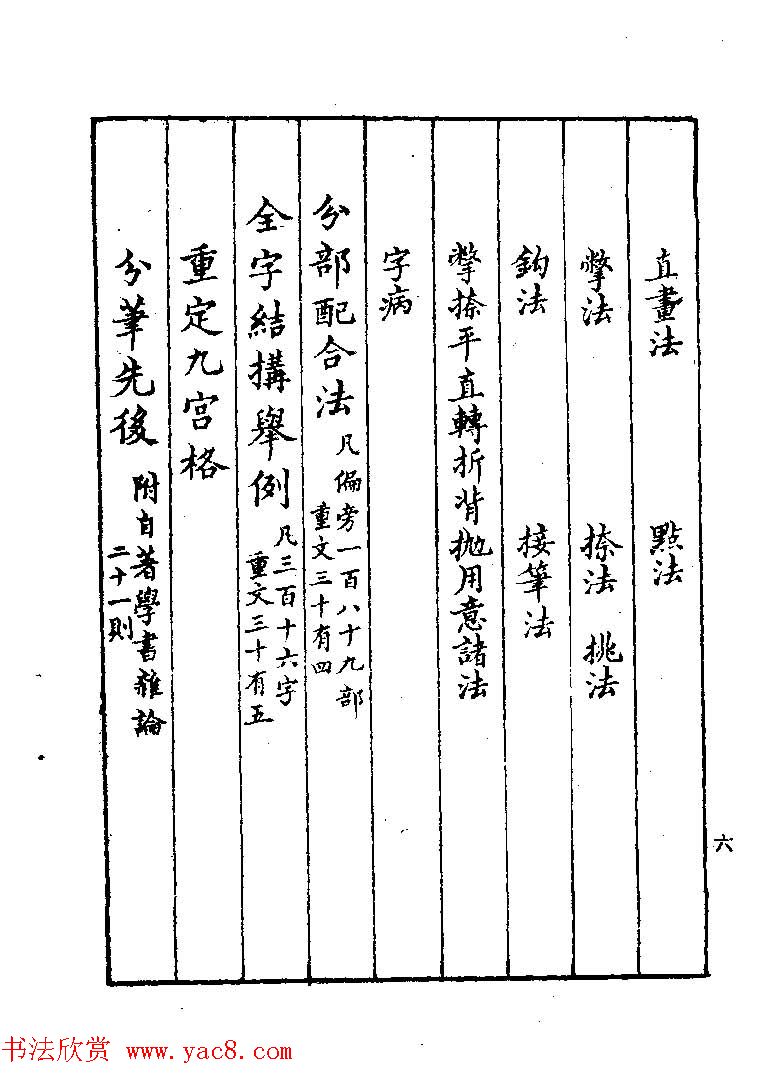 直畫法 點法
撆法 捺法 挑法
鈎法 接筆法
撆捺平直轉折背拋用意諸法
字病
分部配合法 凡偏旁一百八十九部
重文三十有四
全字結搆舉例 凡三百十六字
重文三十有五
重定九宮格
分筆先後 附自著學書雜論
二十一則
六
书法欣赏 www.yac8.com